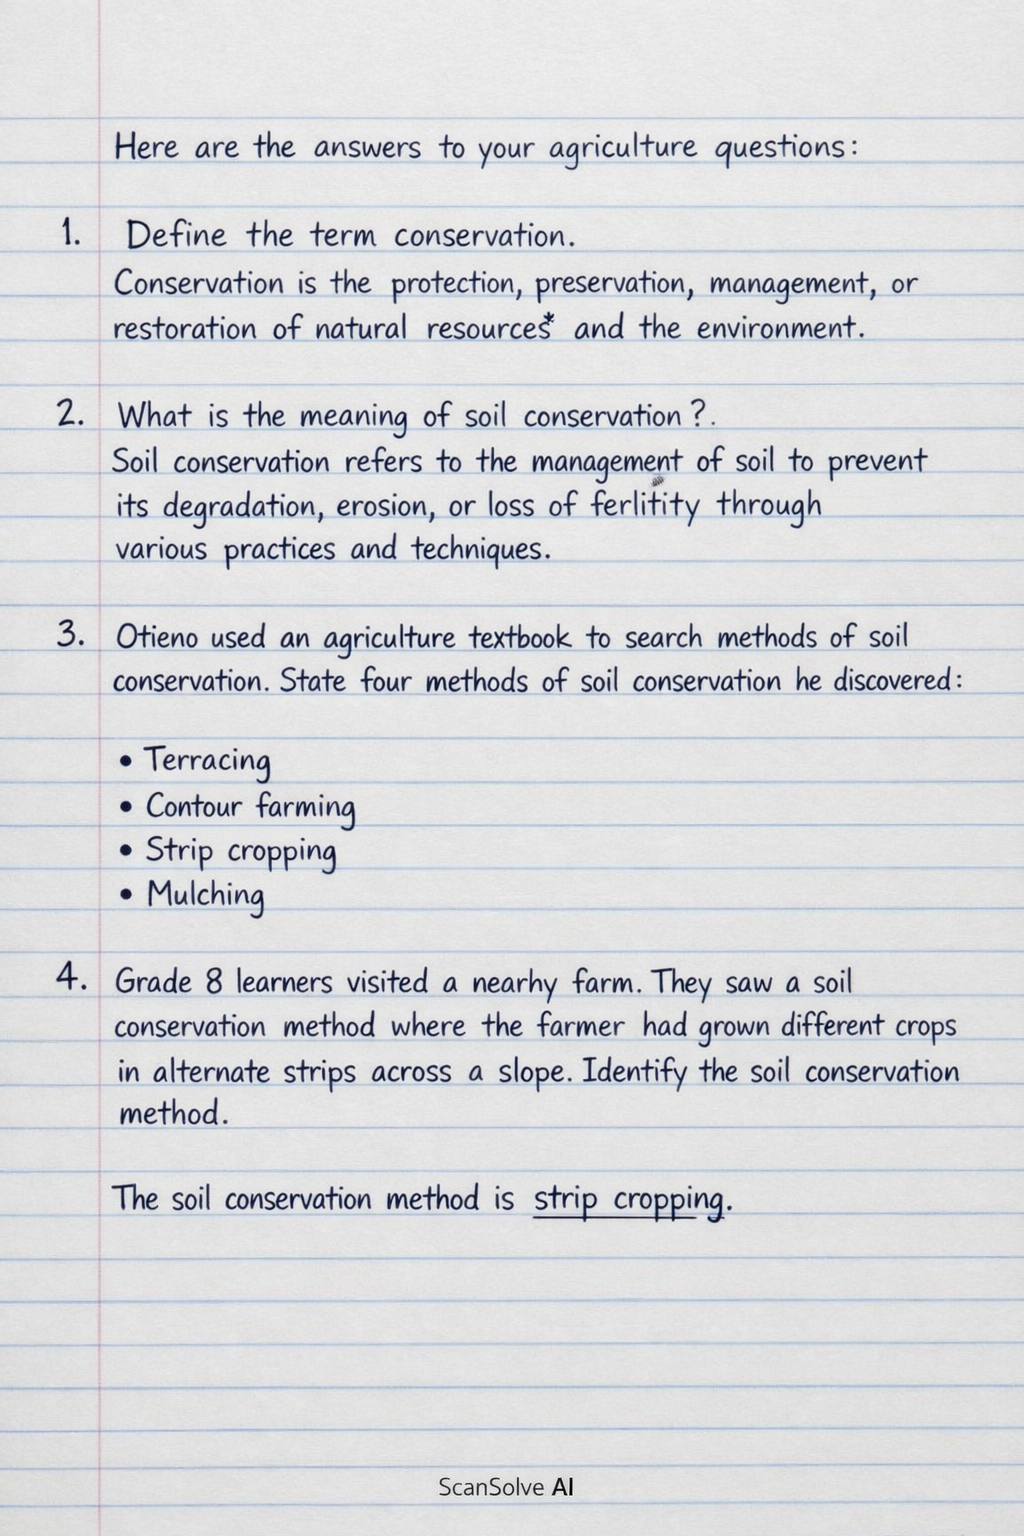 Here are the answers to your agriculture questions:
1. Define the term conservation.
Conservation is the protection, preservation, management, or
restoration of natural resources* and the environment.
2. What is the meaning of soil conservation?.
Soil conservation refers to the management of soil to prevent
its degradation, erosion, or loss of ferlitity through
various practices and techniques.
3. Otieno used an agriculture textbook to search methods of soil
conservation. State four methods of soil conservation he discovered:
• Terracing
• Contour farming
• Strip cropping
• Mulching
4. Grade 8 learners visited a nearhy farm. They saw a soil
conservation method where the farmer had grown different crops
in alternate strips across a slope. Identify the soil conservation
method.
The soil conservation method is strip cropping.
ScanSolve AI